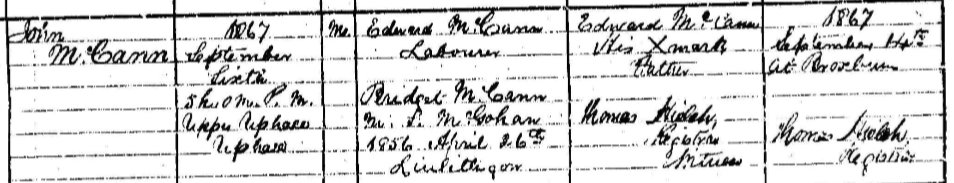 John
McCann
1867
September
Sixth
5h. 0m. P.M.
Upper Uphall
Uphall
M.
Edward McCann
Labourer
Bridget McCann
M. S. McGohan
1856 April 26th
Linlithgow
Edward McCann
His X mark
Father
Thomas
Registrar
Witness
1867
September 14th
At Broxburn
Thomas
Registrar